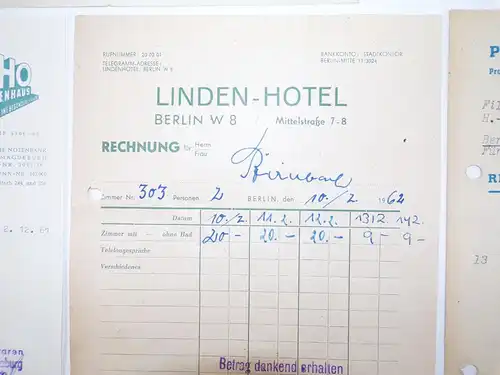 RUFNUMMER: 20 70 01
TELEGRAMM-ADRESSE:
LINDENHOTEL BERLIN W 8
BANKKONTO: STADTKONTOR
LINDEN-HOTEL
BERLIN W 8 / Mittelstraße 7-8
RECHNUNG für Herrn
Frau
Birnbach
Zimmer Nr. 303 Personen 2 BERLIN, den 10./2. 1962
Datum 10./2. 11.2. 12.2. 13.2. 14.2.
Zimmer mit — ohne Bad 20.- 20.- 20.- 9.- 9.-
Telefongespräche
Verschiedenes
Betrag dankend erhalten
HO
ENHAUS
2. 12. 61
P
Fil
H.-
Ber
Für
RE
13